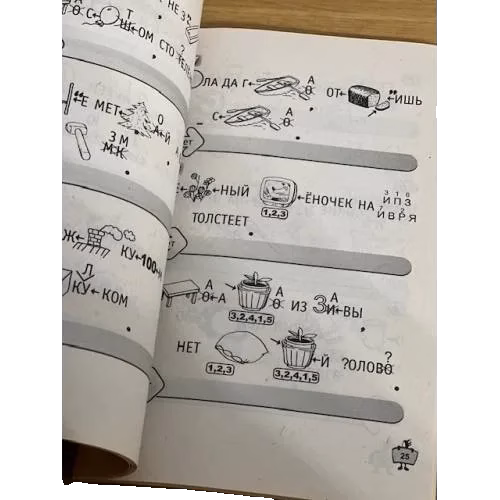 НЕ З
С←
Т
Ш←ОМ СТО
?
ЛА ДА Г←
А
О
ОТ←
"ИШЬ
С←
А
О
"Е МЕТ←
О
А←Й
З М
М К
←НЫЙ
1,2,3
←ЁНОЧЕК НА
3 1 8
И П З
7 2
И В Р Я
ТОЛСТЕЕТ
Ж←
КУ←100
Л
КУ←КОМ
А
О←А
3,2,4,1,5
А
О
ИЗ
А
ЗИ←ВЫ
НЕТ
1,2,3
3,2,4,1,5
←Й
?
?ОЛОВО
25